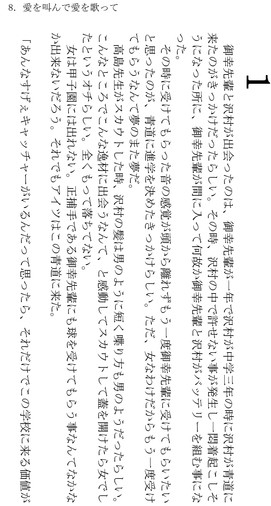 8. 愛を叫んで愛を歌って
1
御幸先輩と沢村が出会ったのは、御幸先輩が一年で沢村が中学三年の時に沢村が青道に
来たのがきっかけだったらしい。その時、沢村の中で許せない事が発生し一悶着起こしそ
うになった所に、御幸先輩が間に入って何故か御幸先輩と沢村がバッテリーを組む事にな
った。
その時に受けてもらった音の感覚が頭から離れずもう一度御幸先輩に受けてもらいたい
と思ったのが、青道に進学を決めたきっかけらしい。ただ、女なわけだからもう一度受け
てもらうなんて夢のまた夢だ。
高島先生がスカウトした時、沢村の髪は男のように短く喋り方も男のようだったらしい。
こんなところでこんな逸材に出会うなんて、と感動してスカウトして蓋を開けたら女でし
たというオチらしい、全くもって落ちてない。
女は甲子園には出れない。正捕手である御幸先輩にも球を受けてもらう事なんてなかな
か出来ないだろう。それでもアイツはこの青道に来た。
「あんなすげぇキャッチャーがいるんだって思ったら、それだけでこの学校に来る価値が